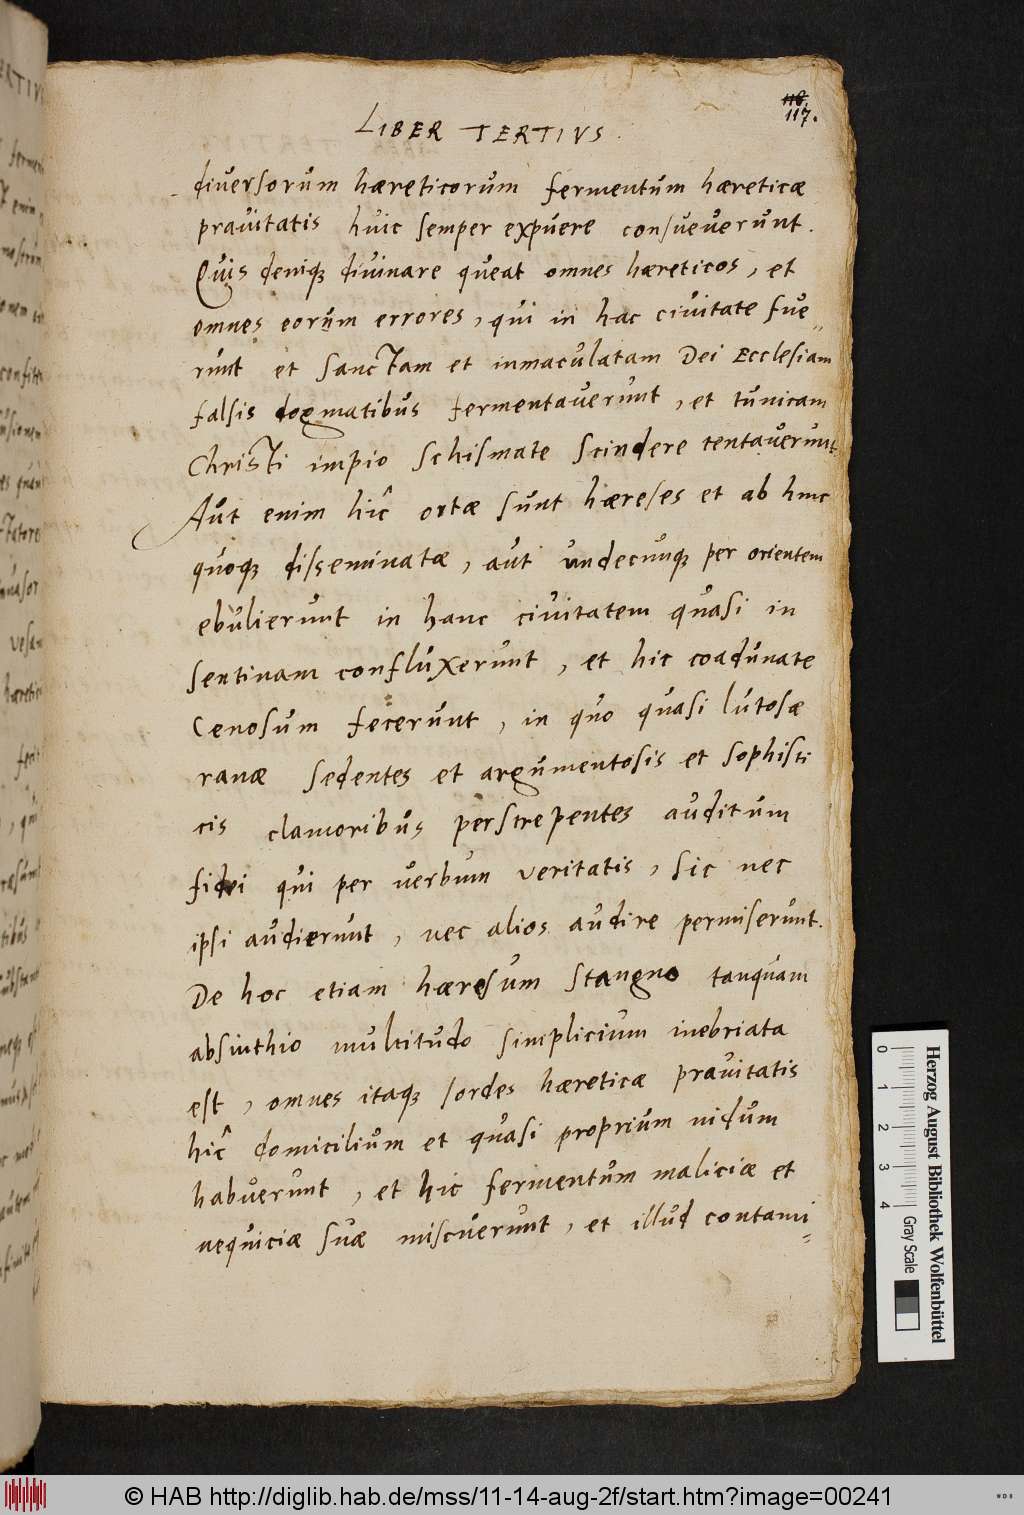 118.
117.
LIBER TERTIVS.
diversorum hæreticorum fermentum hæreticæ
pravitatis huic semper expuere consueverunt.
Quis deniqꝫ divinare queat omnes hæreticos, et
omnes eorum errores, qui in hac civitate fue=
runt et sanctam et inmaculatam Dei Ecclesiam
falsis dogmatibus fermentaverunt, et tunicam
Christi impio schismate scindere tentaverunt.
Aut enim hîc ortæ sunt hæreses et ab hinc
quoqꝫ disseminatæ, aut undecunqꝫ per orientem
ebulierunt in hanc civitatem quasi in
sentinam confluxerunt, et hic coadunate
Cenosum fecerunt, in quo quasi lutosæ
ranæ sedentes et argumentosis et sophisti
cis clamoribus perstrepentes auditum
fidei qui per verbum veritatis, sic nec
ipsi audierunt, nec alios audire permiserunt.
De hoc etiam hæresum stangno tanquam
absinthio multitudo simplicium inebriata
est, omnes itaqꝫ sordes hæreticæ pravitatis
hîc domicilium et quasi proprium nidum
habuerunt, et hic fermentum maliciæ et
nequiciæ suæ miscuerunt, et illud contami=
Herzog August Bibliothek Wolfenbüttel
0 1 2 3 4 Gray Scale
© HAB http://diglib.hab.de/mss/11-14-aug-2f/start.htm?image=00241